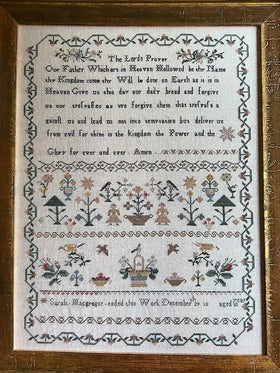 The Lords Prayer
Our Father Which art in Heaven Hallowed be thy Name
thy Kingdom come thy Will be done on Earth as it is in
Heaven Give us this day our daily bread and forgive
us our trefpaffes as we forgive them that trefpafs a
gainft us and lead us not into temptation but deliver us
from evil for thine is the Kingdom the Power and the
Glory for ever and ever Amen
Sarah Macgregor ended this Work December 19 18 aged year